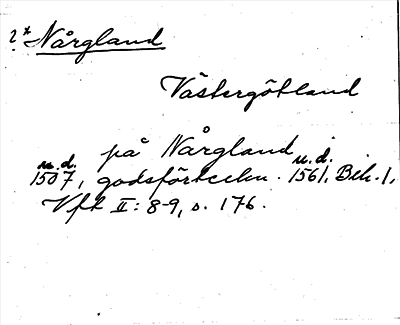 ?* Nårgland
Västergötland
på Nårgland
u.d. 1507, godsförteckn. u.d. 1561, Bih. 1,
Vft II: 8-9, s. 176.